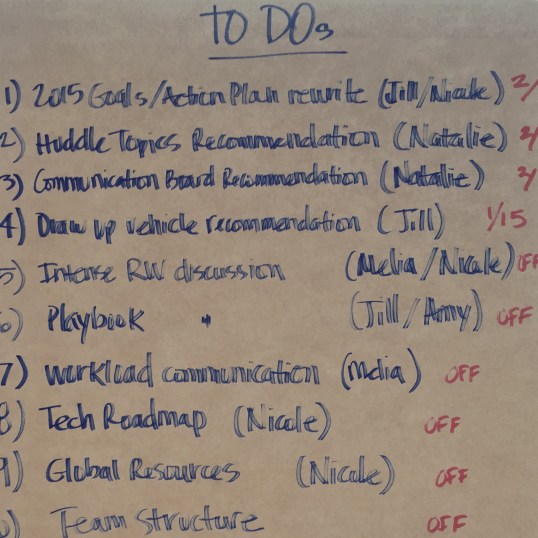 TO DOs
1) 2015 Goals/Action Plan rewrite (Jill/Nicole) 2/
2) Huddle Topics Recommendation (Natalie)
3) Communication Board Recommendation (Natalie)
4) Draw up vehicle recommendation (Jill) 1/15
5) Intense RW discussion (Melia/Nicole) OFF
6) Playbook " (Jill/Amy) OFF
7) Workload communication (Melia) OFF
8) Tech Roadmap (Nicole) OFF
9) Global Resources (Nicole) OFF
Team Structure OFF